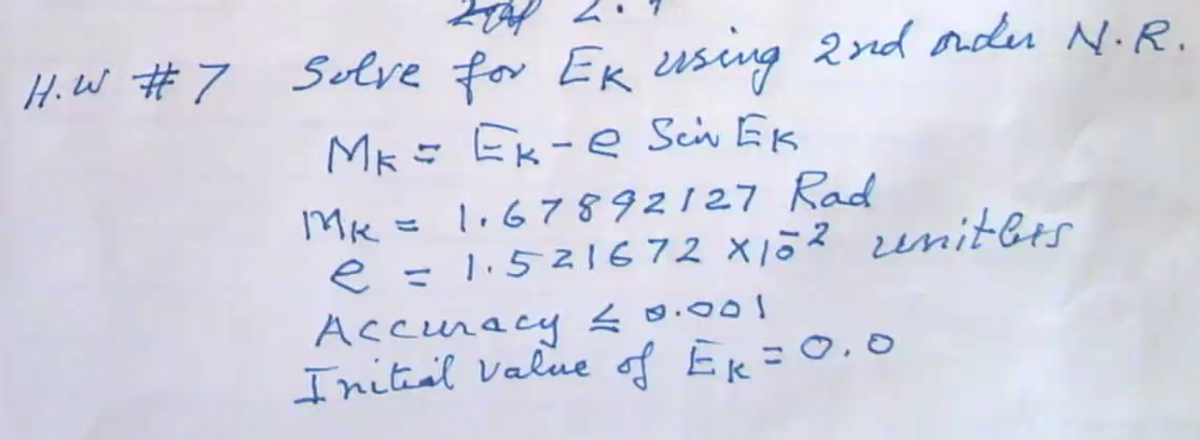 2.
H.W #7 Solve for EK using 2nd order N.R.
MK = EK - e Sin EK
MK = 1.67892127 Rad
e = 1.521672 X10^-2 unitless
Accuracy ≤ 0.001
Initial value of EK = 0.0